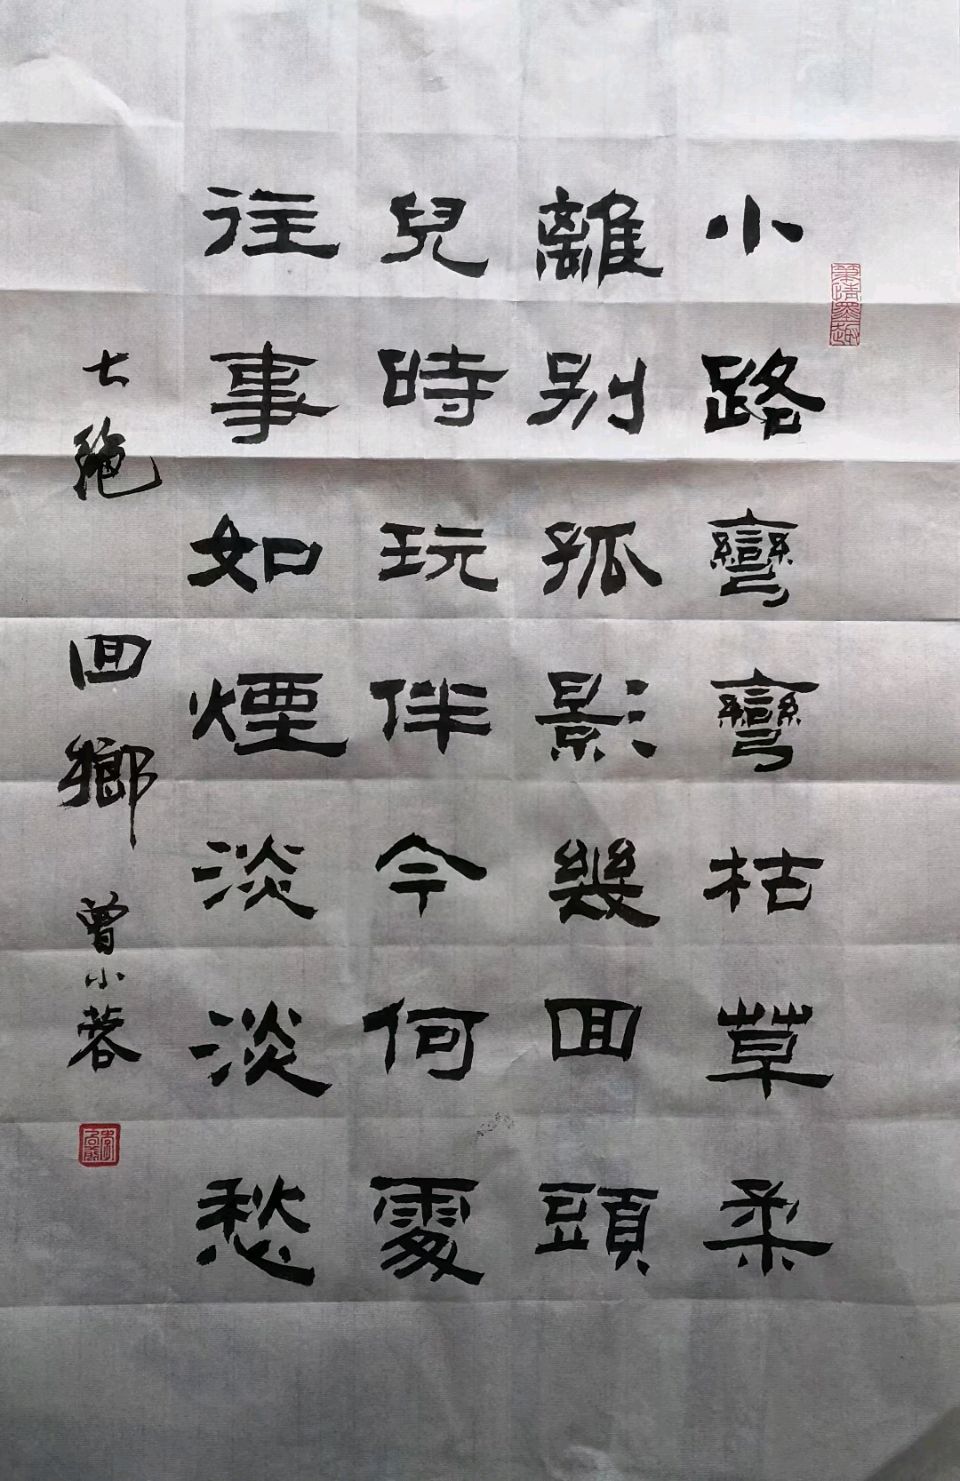 小路彎彎枯草柔
離別孤影幾回頭
兒時玩伴今何處
往事如煙淡淡愁
七絕 回鄉 曾小蓉
筆情墨趣